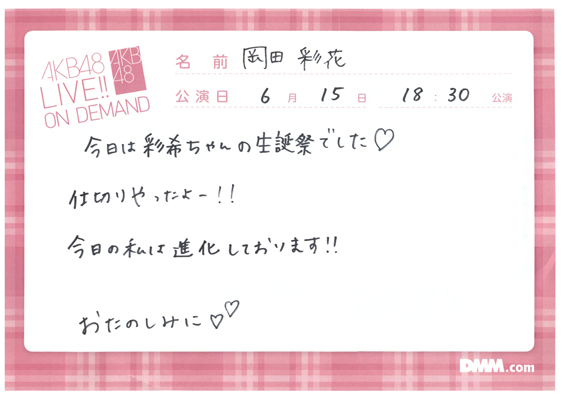 AKB48
LIVE!!
ON DEMAND
AKB
48
名前 岡田 彩花
公演日 6月 15日 18:30 公演
今日は彩希ちゃんの生誕祭でした♡
仕切りやったよー!!
今日の私は進化しております!!
おたのしみに♡♡
DMM.com